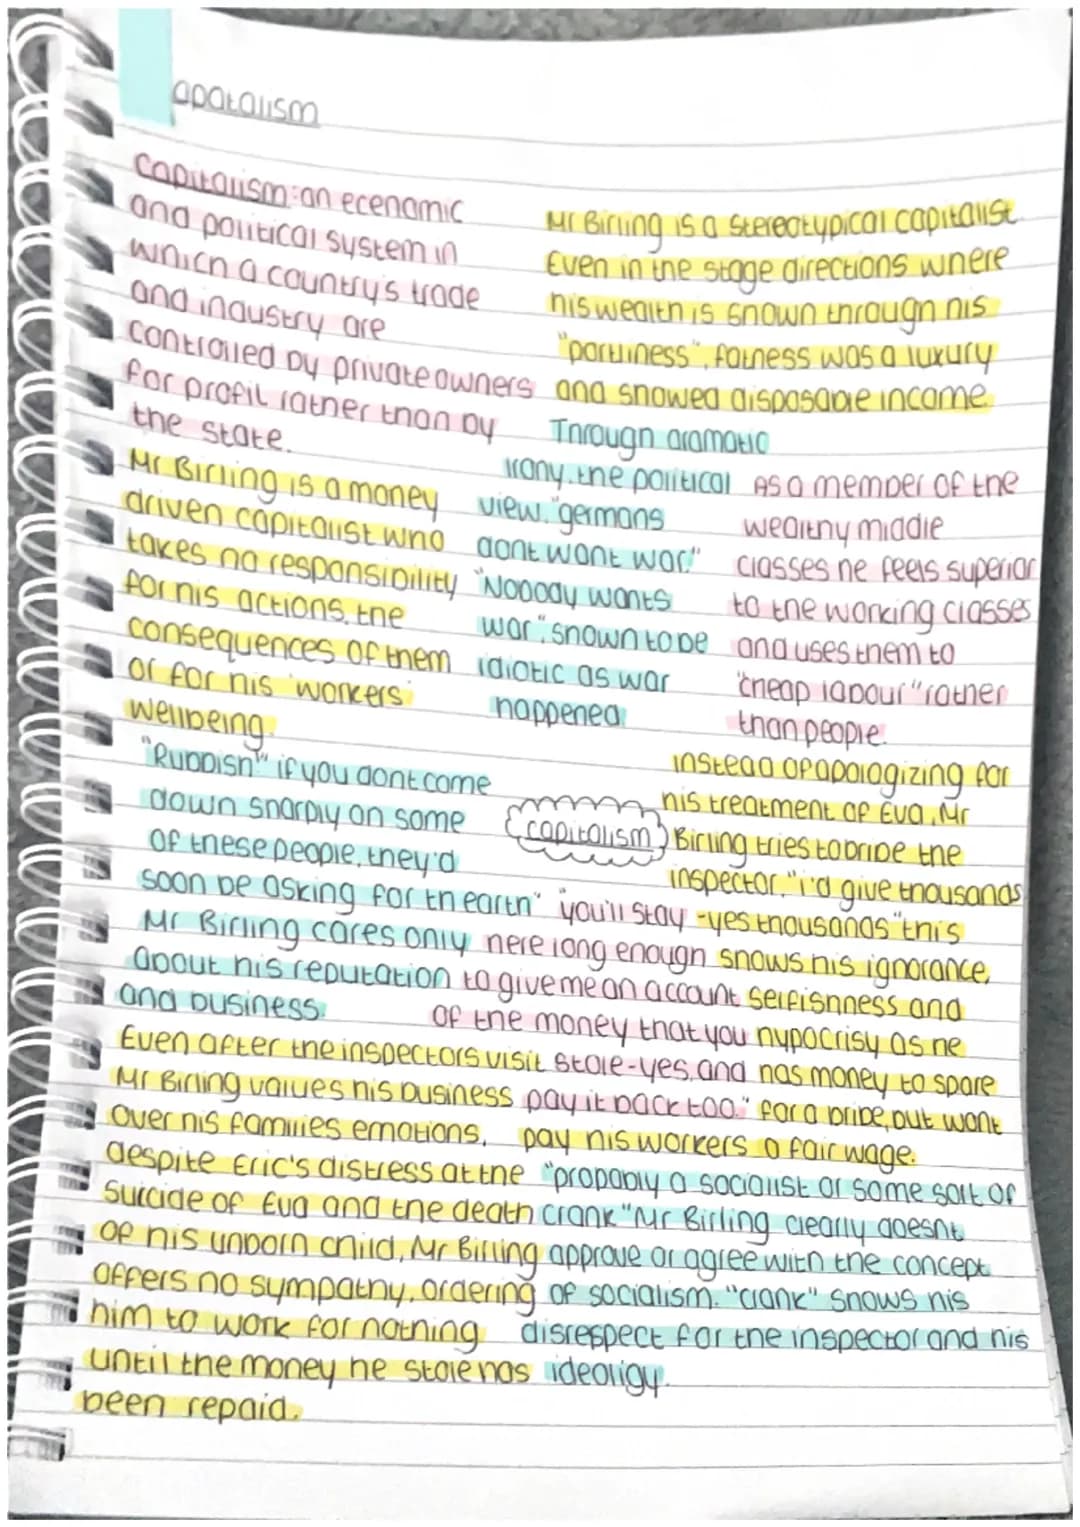 apatalism
Capitalism: an ecenomic
and political system in
which a country's trade
and industry are
controlled by private owners
for profit rather than by
the state.
Mr Birling is a stereotypical capitalist
Even in the stage directions where
his wealth is shown through his
"portliness", fatness was a luxury
and showed disposable income.
Mr Birling is a money
driven capitalist who
takes no responsibility
for his actions, the
consequences of them
or for his 'workers'
wellbeing.
Through dramatic
irony, the political
view. "germans
dont want war."
"Nobody wants
war". shown to be
idiotic as war
happened.
As a member of the
wealthy middle
classes he feels superior
to the working classes
and uses them to
"cheap labour" rather
than people.
"Rubbish" if you dont come
down sharply on some
of these people, they'd
soon be asking for th earth"
Mr Birling cares only
about his reputation
and business.
capitalism
instead of apologizing for
his treatment of Eva, Mr
Birling tries to bribe the
inspector. "i'd give thousands
-yes thousands" this
shows his ignorance,
selfishness and
hypocrisy as he
has money to spare
for a bribe, but wont
pay his workers a fair wage.
"you'll stay
here long enough
to give me an account
of the money that you
stole-yes, and
pay it back too."
Even after the inspectors visit
Mr Birling values his business
over his families emotions,
despite Eric's distress at the
suicide of Eva and the death
of his unborn child, Mr Birling
offers no sympathy, ordering
him to work for nothing
until the money he stole has
been repaid.
"probably a socialist or some sort of
crank" Mr Birling clearly doesnt
approve or aggree with the concept
of socialism. "crank" shows his
disrespect for the inspector and his
ideoligy.